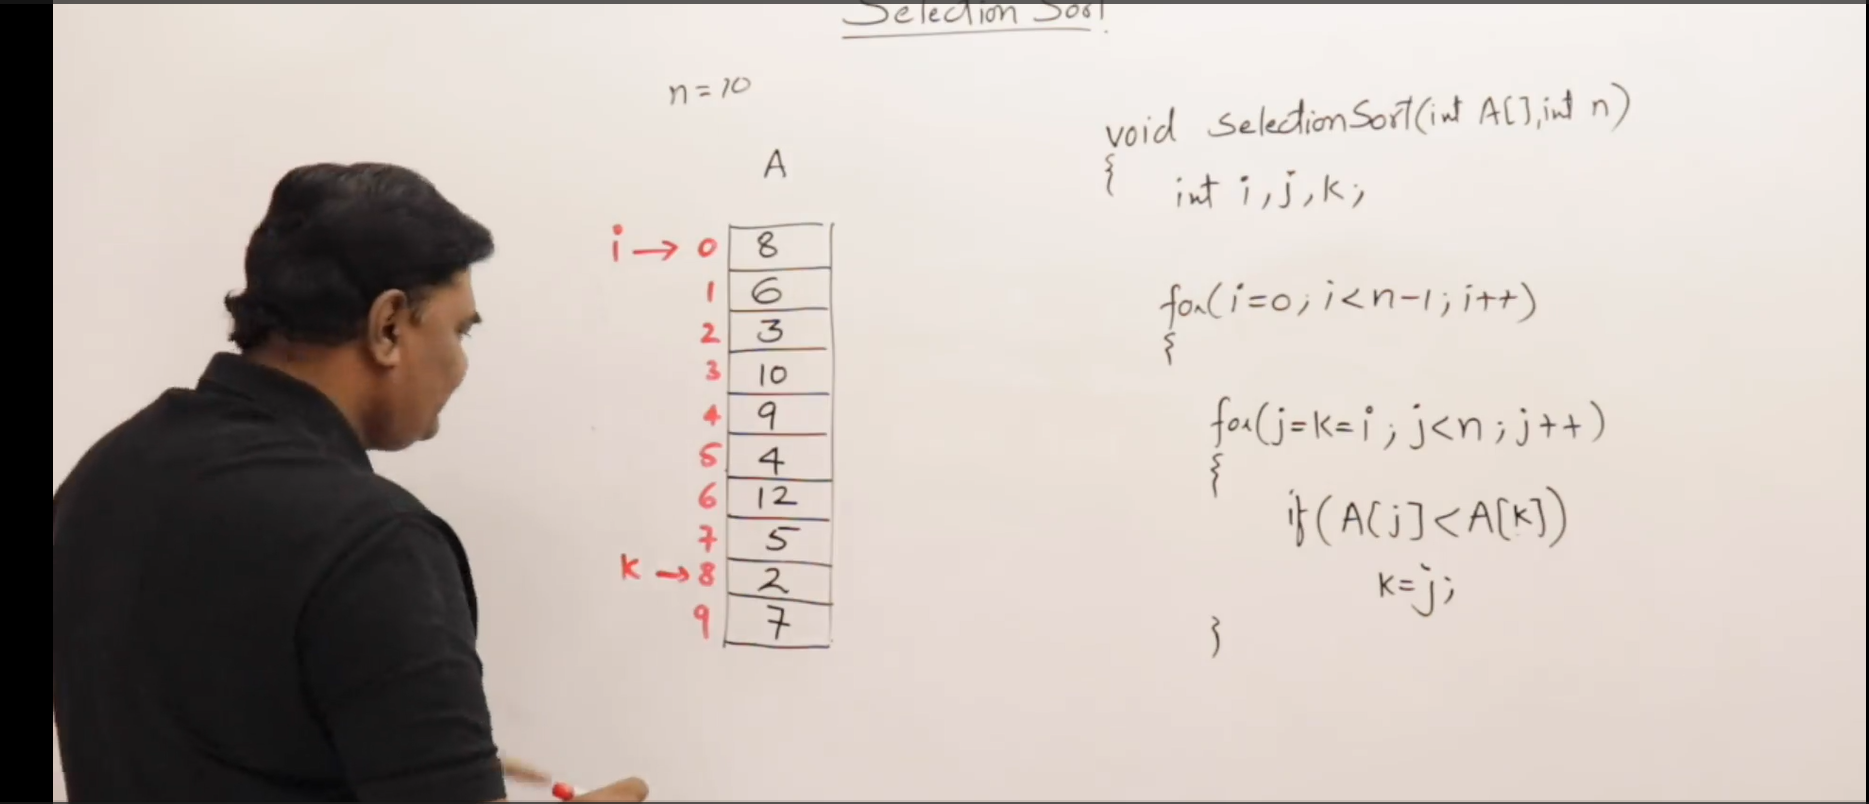 Selection Sort
n=10
A
i → 0 8
1 6
2 3
3 10
4 9
5 4
6 12
7 5
k → 8 2
9 7
void SelectionSort(int A[],int n)
{
int i,j,k;
for(i=0; i<n-1; i++)
{
for(j=k=i; j<n; j++)
{
if(A[j]<A[k])
k=j;
}